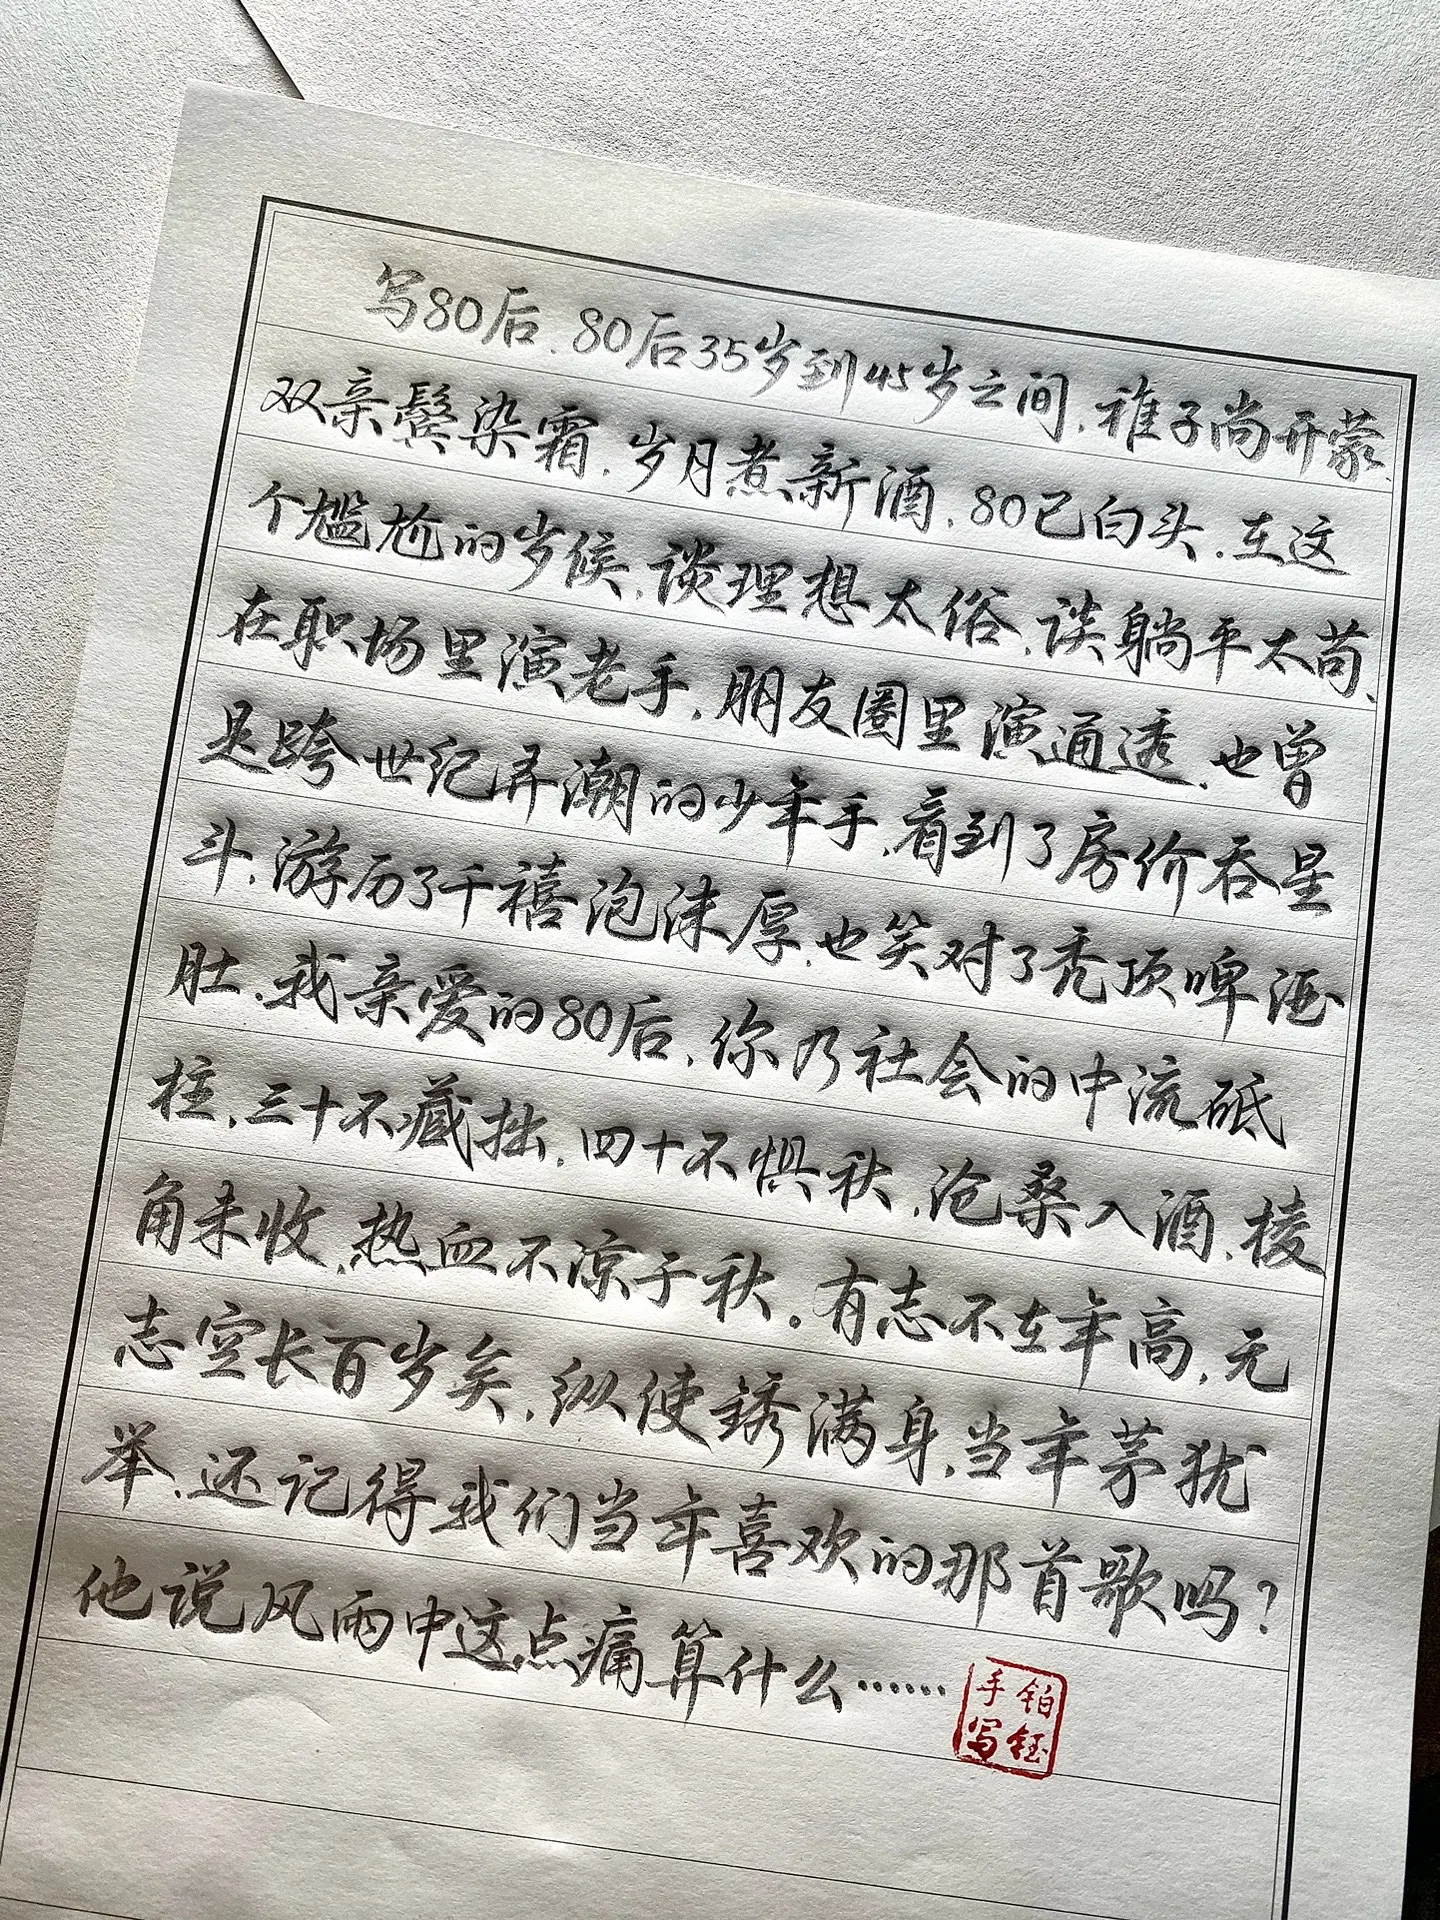 写80后.80后35岁到45岁之间,稚子尚开蒙.
双亲鬓染霜.岁月煮新酒.80已白头.在这
个尴尬的岁候,谈理想太俗.谈躺平太苟、
在职场里演老手.朋友圈里演通透.也曾
是跨世纪弄潮的少年手.看到了房价吞星
斗.游历了千禧泡沫厚.也笑对了秃顶啤酒
肚.我亲爱的80后,你乃社会的中流砥
柱.三十不藏拙.四十不惧秋.沧桑入酒.棱
角未收.热血不凉于秋。有志不在年高,无
志空长百岁矣,纵使锈满身.当年茅犹
举.还记得我们当年喜欢的那首歌吗?
他说风雨中这点痛算什么……
铂钰
手写